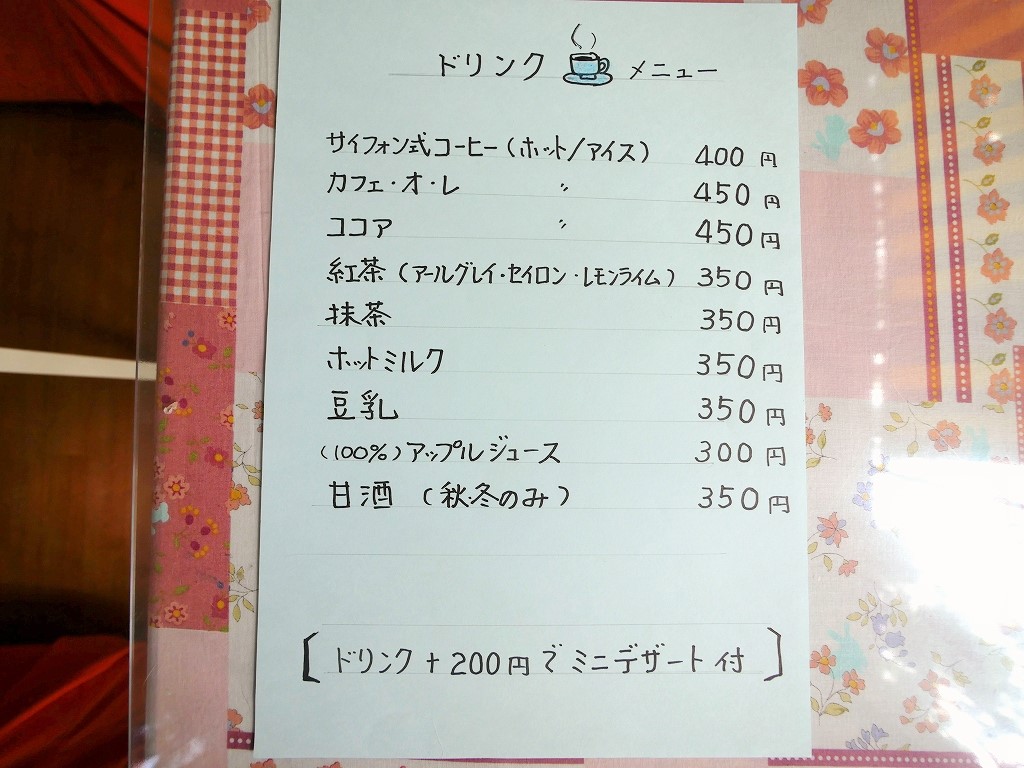 ドリンク メニュー
サイフォン式コーヒー(ホット/アイス) 400円
カフェ・オ・レ 〃 450円
ココア 〃 450円
紅茶(アールグレイ・セイロン・レモンライム) 350円
抹茶 350円
ホットミルク 350円
豆乳 350円
(100%)アップルジュース 300円
甘酒(秋・冬のみ) 350円
[ドリンク+200円でミニデザート付]